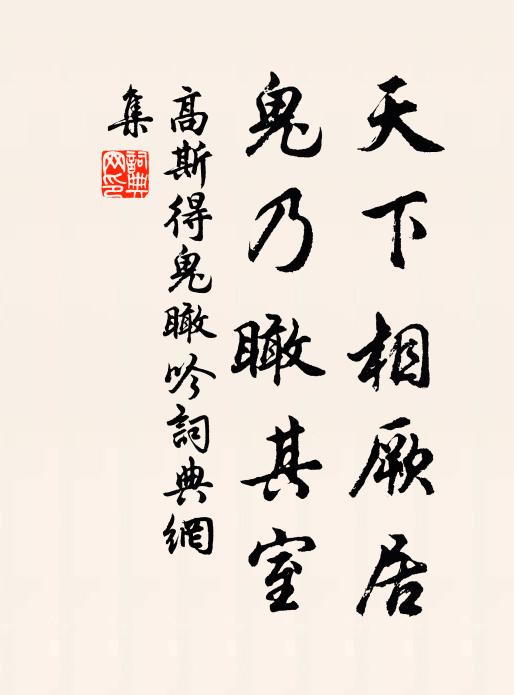 天下相厥居
鬼乃瞰其室
高斯得鬼瞰吟詞典網
集
詞典
网印